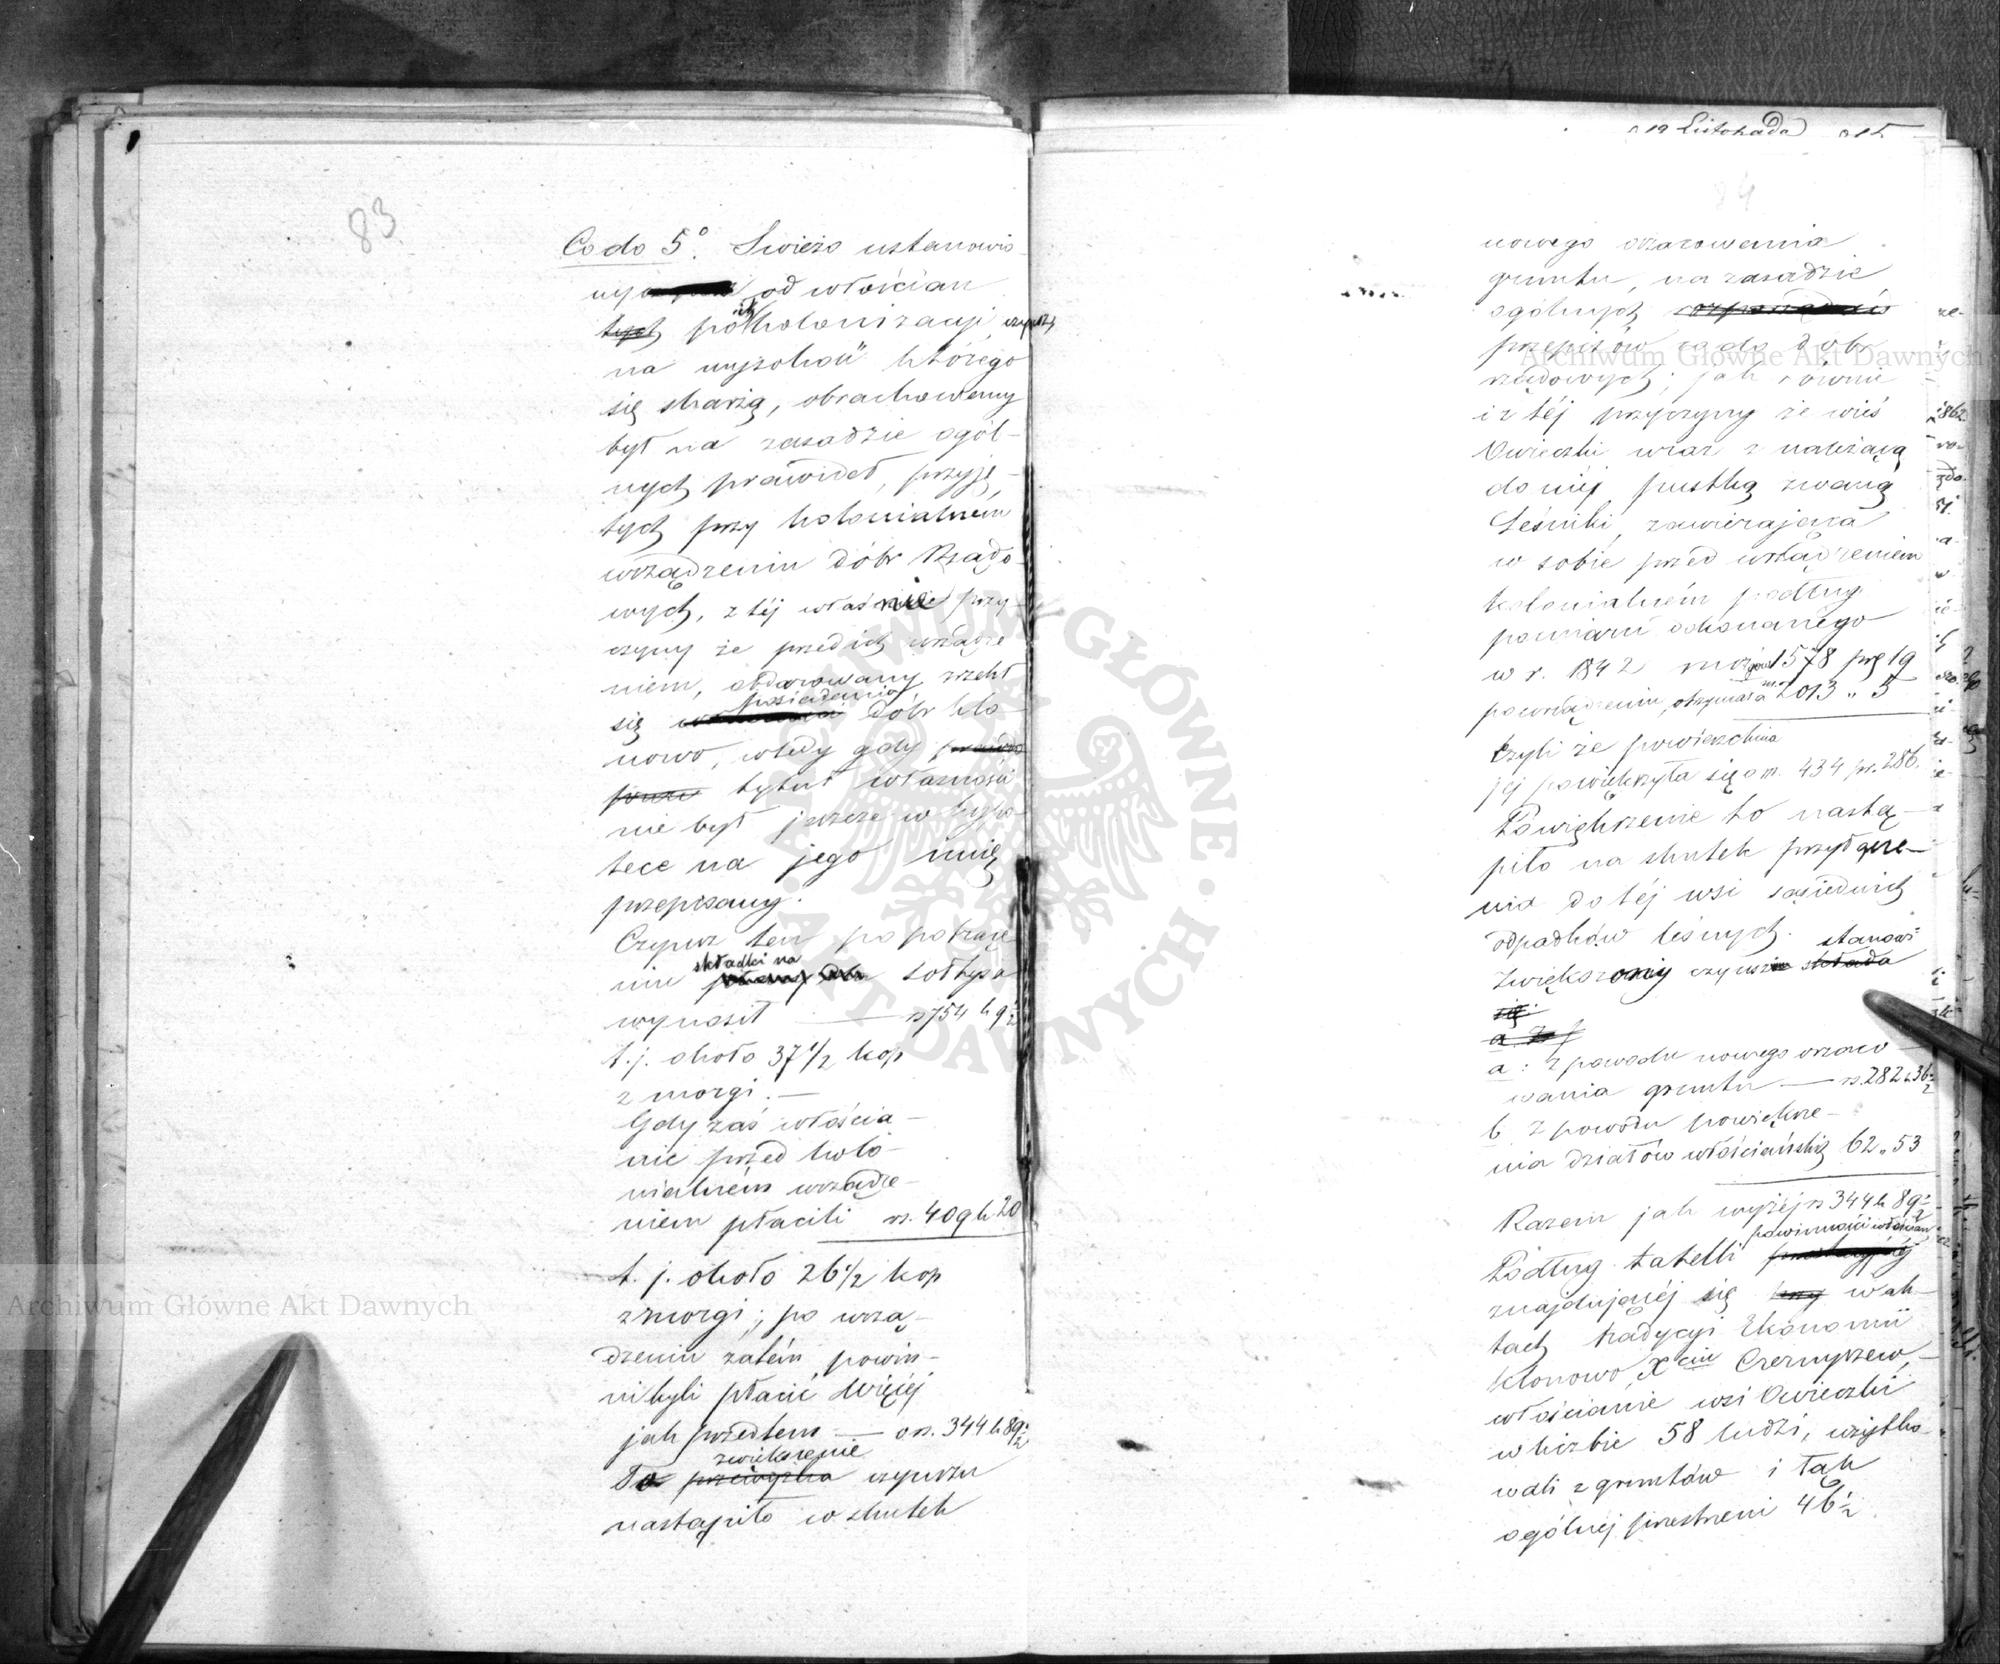 83
Co do 5° Świeżo ustanowio
ny od włościan
tych po ich kolonizacji czynsz,
na wysokość którego
się skarżą, obrachowany
był na zasadzie ogól-
nych prawideł, przyję-
tych przy kolonialnem
urządzeniu dóbr Rządo-
wych, z téj właśnie przy-
czyny że przed ich urządze
niem, obdarowany zrzekł
posiadania
się dóbr Kło-
nowo, wtedy gdy prawo
tytuł własności
nie był jeszcze w hypo-
tece na jego imię
przepisany.
Czynsz ten po potrące-
składki na
niu sołtysa
wynosił — rs 754 k 9½
t. j. około 37 1/2 kop
z morgi. —
Gdy zaś włościa-
nie przed kolo-
nialném urządze-
niem płacili rs. 409 k 20
t. j. około 26 1/2 kop
z morgi; po urzą-
dzeniu zatém powin-
ni byli płacić więcéj
jak przedtem — o rs. 344 k 89½
zwiększenie
To przewyżka czynszu
nastąpiło w skutek
19 Listopada
84
nowego oszacowania
gruntu, na zasadzie
ogólnych rozporządzeń
przepisów co do dóbr
rządowych; jak równie
i z téj przyczyny że wieś
Owieczki wraz z należącą
do niéj pustką zwaną
Leśniki, zawierająca
w sobie przed urządzeniem
kolonialném podług
pomiaru dokonanego
w r. 1842 morgów 1578 prę 19
po urządzeniu, otrzymała m. 2013 „ 5
czyli że powierzchnia
jéj powiększyła się o m. 434 pr. 286.
Powiększenie to nastą-
piło na skutek przyłącze-
nia do téj wsi sąsiednich
odpadków leśnych.
stanowi
Zwiększony czynsz składa
się:
a
a: z powodu nowego oszaco-
wania gruntu — rs. 282 k 36½
b z powodu powiększe-
nia działów włościańskich 62 „ 53
Razem jak wyżéj rs 344 k 89½
powinności włościan
Podług tabelli
znajdującéj się przy w ak-
tach tradycyi Ekonomii
Kłonowo, Xciu Czernyszew,
włościanie wsi Owieczki
w liczbie 58 ludzi, użytko-
wali z gruntów i łąk
ogólnéj przestrzeni 46½
Archiwum Główne Akt Dawnych
Archiwum Główne Akt Dawnych
ARCHIWUM GŁÓWNE · AKT DAWNYCH ·